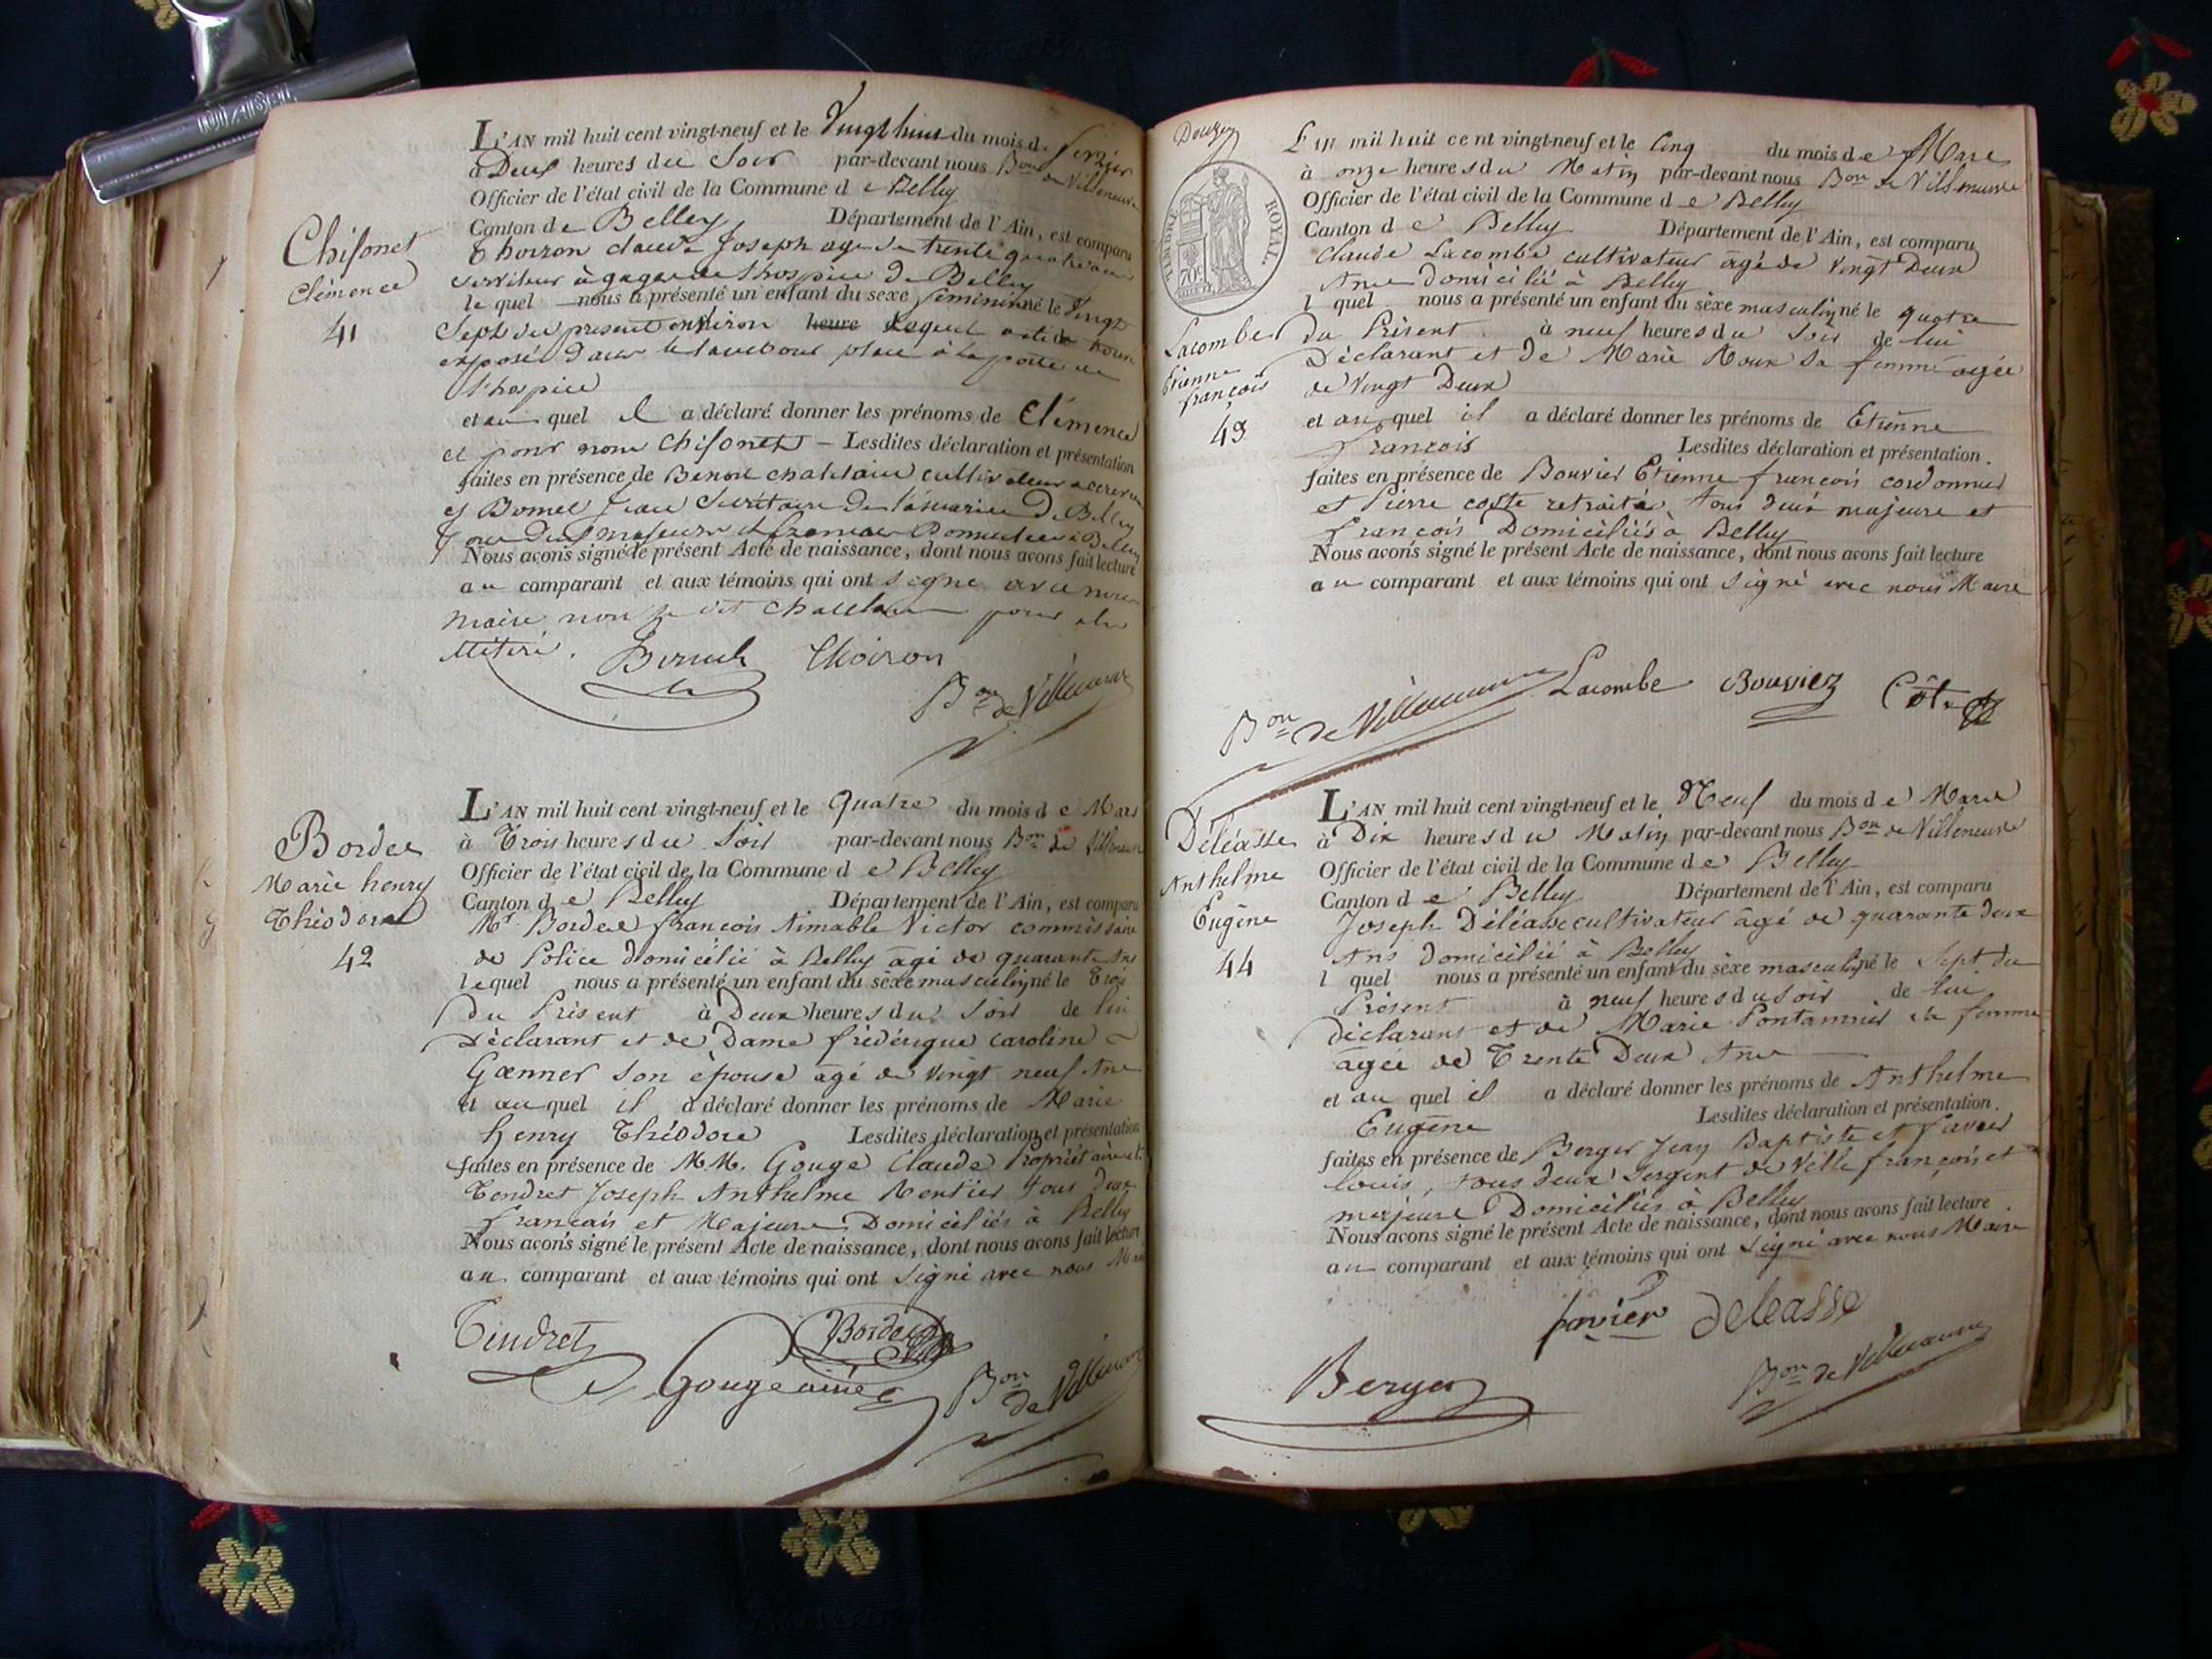 L'AN mil huit cent vingt-neuf et le Vingt huit du mois de fevrier
à Deux heures du Soir par-devant nous Bon de Villeneuve
Officier de l'état civil de la Commune de Belley
Canton de Belley Département de l'Ain, est comparu
Thoiron Claude Joseph agé de trente quatre ans
serviteur à gages de l'hospice de Belley
Chifonet
Clémence
41
lequel nous a présenté un enfant du sexe féminin né le Vingt
Sept du present environ heure
exposée dans le place à la porte de
l'hospice
et au quel il a déclaré donner les prénoms de Clémence
et pour nom Chifonet — Lesdites déclaration et présentation
faites en présence de Benoit cultivateur
et Jean Secrétaire de la mairie de Belley
tous deux majeurs et francais Domiciliés à Belley
Nous avons signé le présent Acte de naissance, dont nous avons fait lecture
au comparant et aux témoins qui ont signé avec nous
maire non ledit pour être
illitéré.
Thoiron
Bon de Villeneuve
L'AN mil huit cent vingt-neuf et le Quatre du mois de Mars
à Trois heures du Soir par-devant nous Bon de Villeneuve
Officier de l'état civil de la Commune de Belley
Canton de Belley Département de l'Ain, est comparu
Bordel
Marie henry
Théodore
42
Mr Bordel françois Aimable Victor commissaire
de Police domicilié à Belley agé de quarante Ans
lequel nous a présenté un enfant du sèxe masculin né le Trois
Du Présent à Deux heures du Soir de lui
Déclarant et de Dame frédérique caroline
Gœnner son épouse agé de Vingt neuf Ans
et au quel il a déclaré donner les prénoms de Marie
henry Théodore Lesdites déclaration et présentation
faites en présence de MM. Gouge Claude Propriétaire et
Tendret Joseph Anthelme Rentier tous deux
français et Majeurs Domiciliés à Belley
Nous avons signé le présent Acte de naissance, dont nous avons fait lecture
au comparant et aux témoins qui ont signé avec nous Maire
Tendret Bordel
Gouge ainé Bon de Villeneuve
TIMBRE ROYAL.
70c
L'AN mil huit cent vingt-neuf et le Cinq du mois de Mars
à onze heures du Matin par-devant nous Bon de Villeneuve
Officier de l'état civil de la Commune de Belley
Canton de Belley Département de l'Ain, est comparu
Claude Lacombe cultivateur agé de Vingt Deux
Ans domicilié à Belley
l quel nous a présenté un enfant du sèxe masculin né le quatre
Lacombe
Etienne
françois
43
Du Présent à neuf heures du Soir de lui
Déclarant et de Marie Roux Sa femme agée
de Vingt Deux
et au quel il a déclaré donner les prénoms de Etienne
francois Lesdites déclaration et présentation.
faites en présence de Bouvier Etienne françois cordonnier
et Pierre coste retraité, tous deux majeurs et
français Domiciliés à Belley
Nous avons signé le présent Acte de naissance, dont nous avons fait lecture
au comparant et aux témoins qui ont signé avec nous Maire
Bon de Villeneuve Lacombe Bouvier
L'AN mil huit cent vingt-neuf et le Neuf du mois de Mars
à Dix heures du Matin par-devant nous Bon de Villeneuve
Officier de l'état civil de la Commune de Belley
Canton de Belley Département de l'Ain, est comparu
Déléasse
Anthelme
Eugène
44
Joseph Déléasse cultivateur âgé de quarante deux
Ans domicilié à Belley
l quel nous a présenté un enfant du sèxe masculin né le Sept du
Présent à neuf heures du soir de lui
déclarant et de Marie Pontannier sa femme
agée de Trente Deux Ans
et au quel il a déclaré donner les prénoms de Anthelme
Eugène Lesdites déclaration et présentation.
faites en présence de Berger Jean Baptiste et favier
louis, tous deux Sergent de Ville françois et
majeurs Domiciliés à Belley
Nous avons signé le présent Acte de naissance, dont nous avons fait lecture
au comparant et aux témoins qui ont signé avec nous Maire
favier deleasse
Berger Bon de Villeneuve